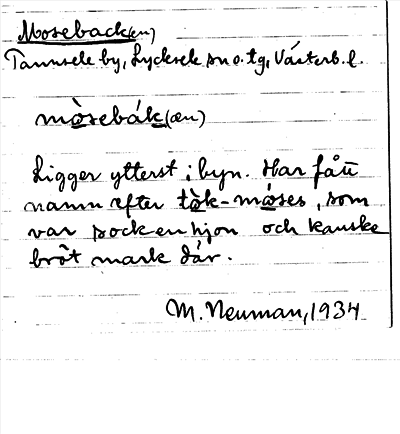 Mosebacken)
Tannsele by, Lycksele sn o. tg, Västerb. l.
mòsebák(æn)
Ligger ytterst i byn. Har fått
namn efter tòk-móses, som
var sockenhjon och kanske
bröt mark där.
M. Neuman, 1934